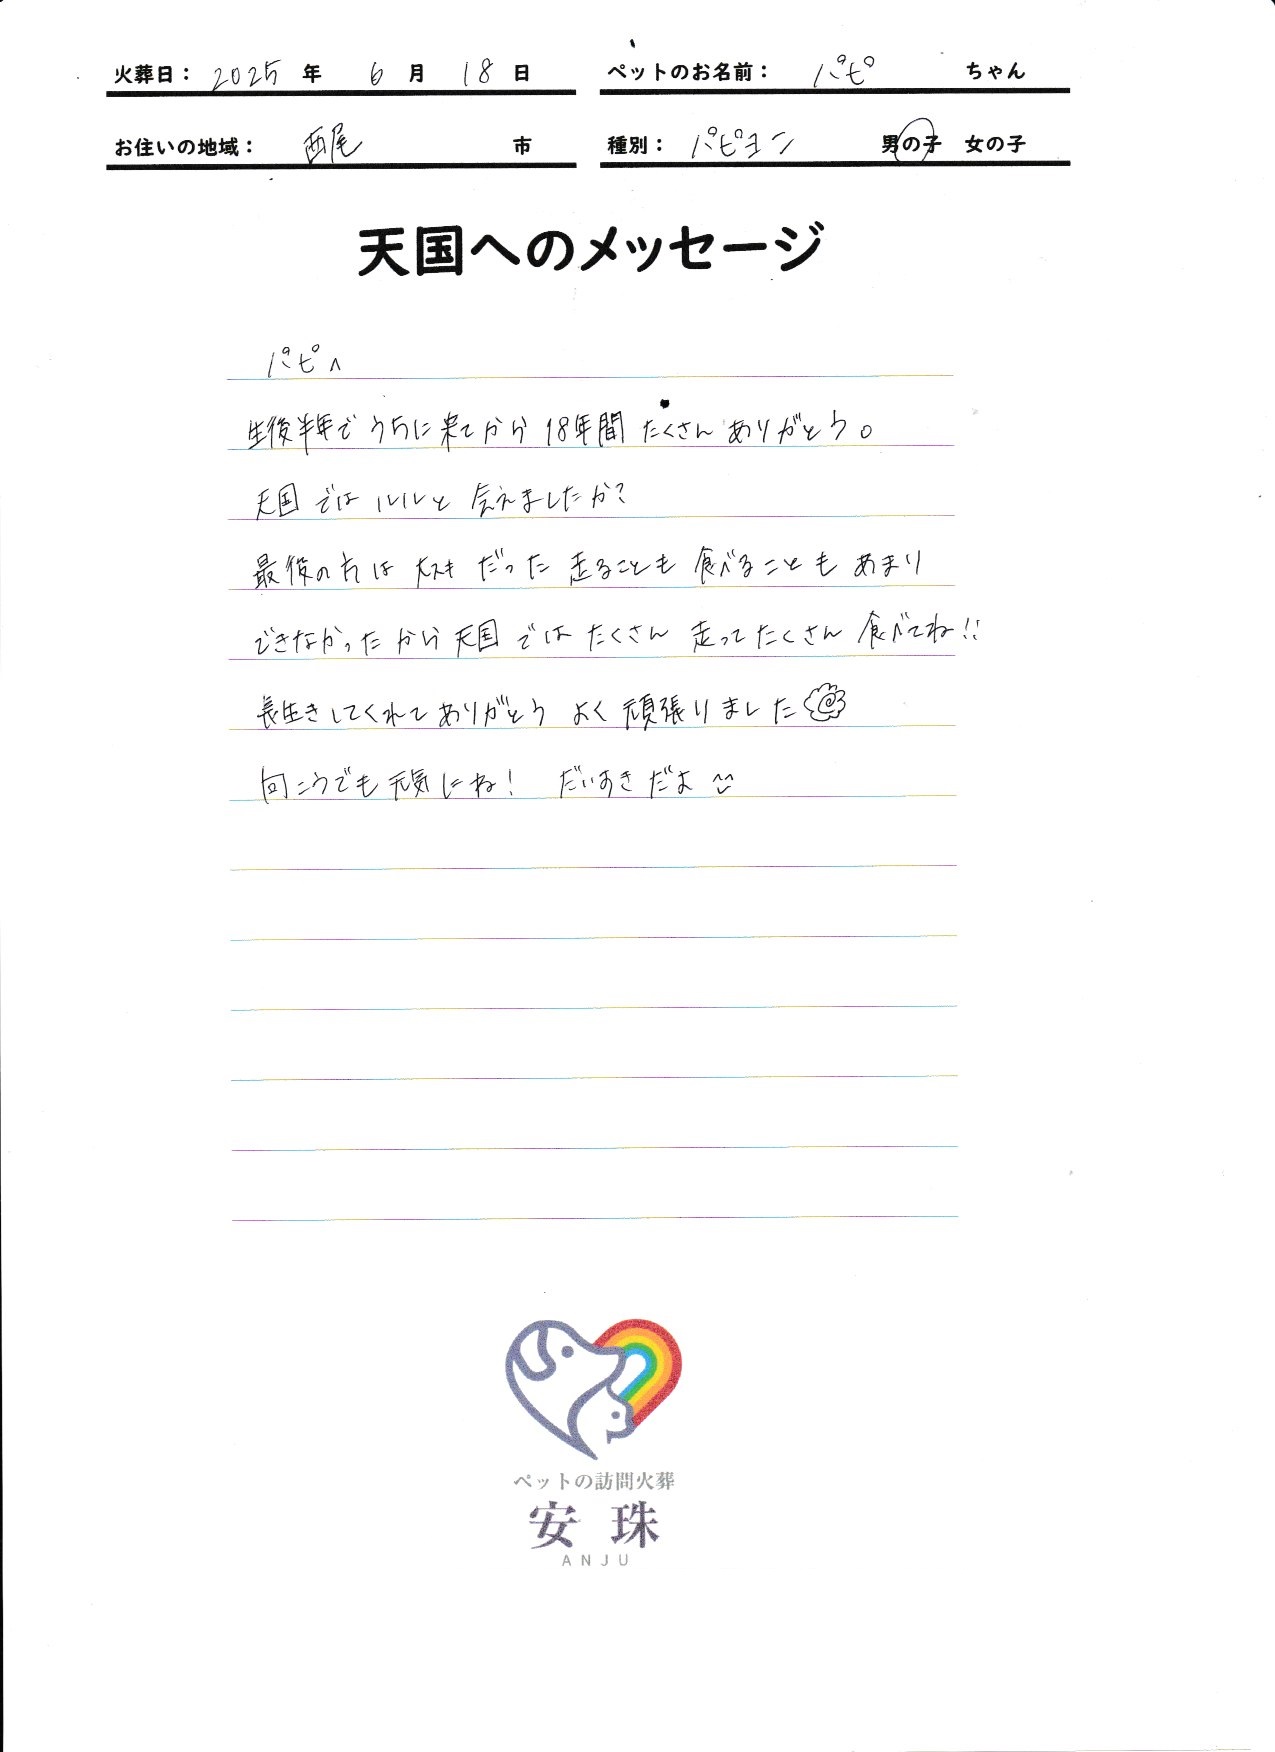 火葬日： 2025 年 6 月 18 日
ペットのお名前： パピ ちゃん
お住いの地域： 西尾 市
種別： パピヨン 男の子 女の子
天国へのメッセージ
パピへ
生後半年でうちに来てから18年間たくさんありがとう。
天国ではルルと会えましたか?
最後の方は大スキだった走ることも食べることもあまり
できなかったから天国ではたくさん走ってたくさん食べてね!!
長生きしてくれてありがとう よく頑張りました
向こうでも元気にね! だいすきだよ
ペットの訪問火葬
安珠
ANJU